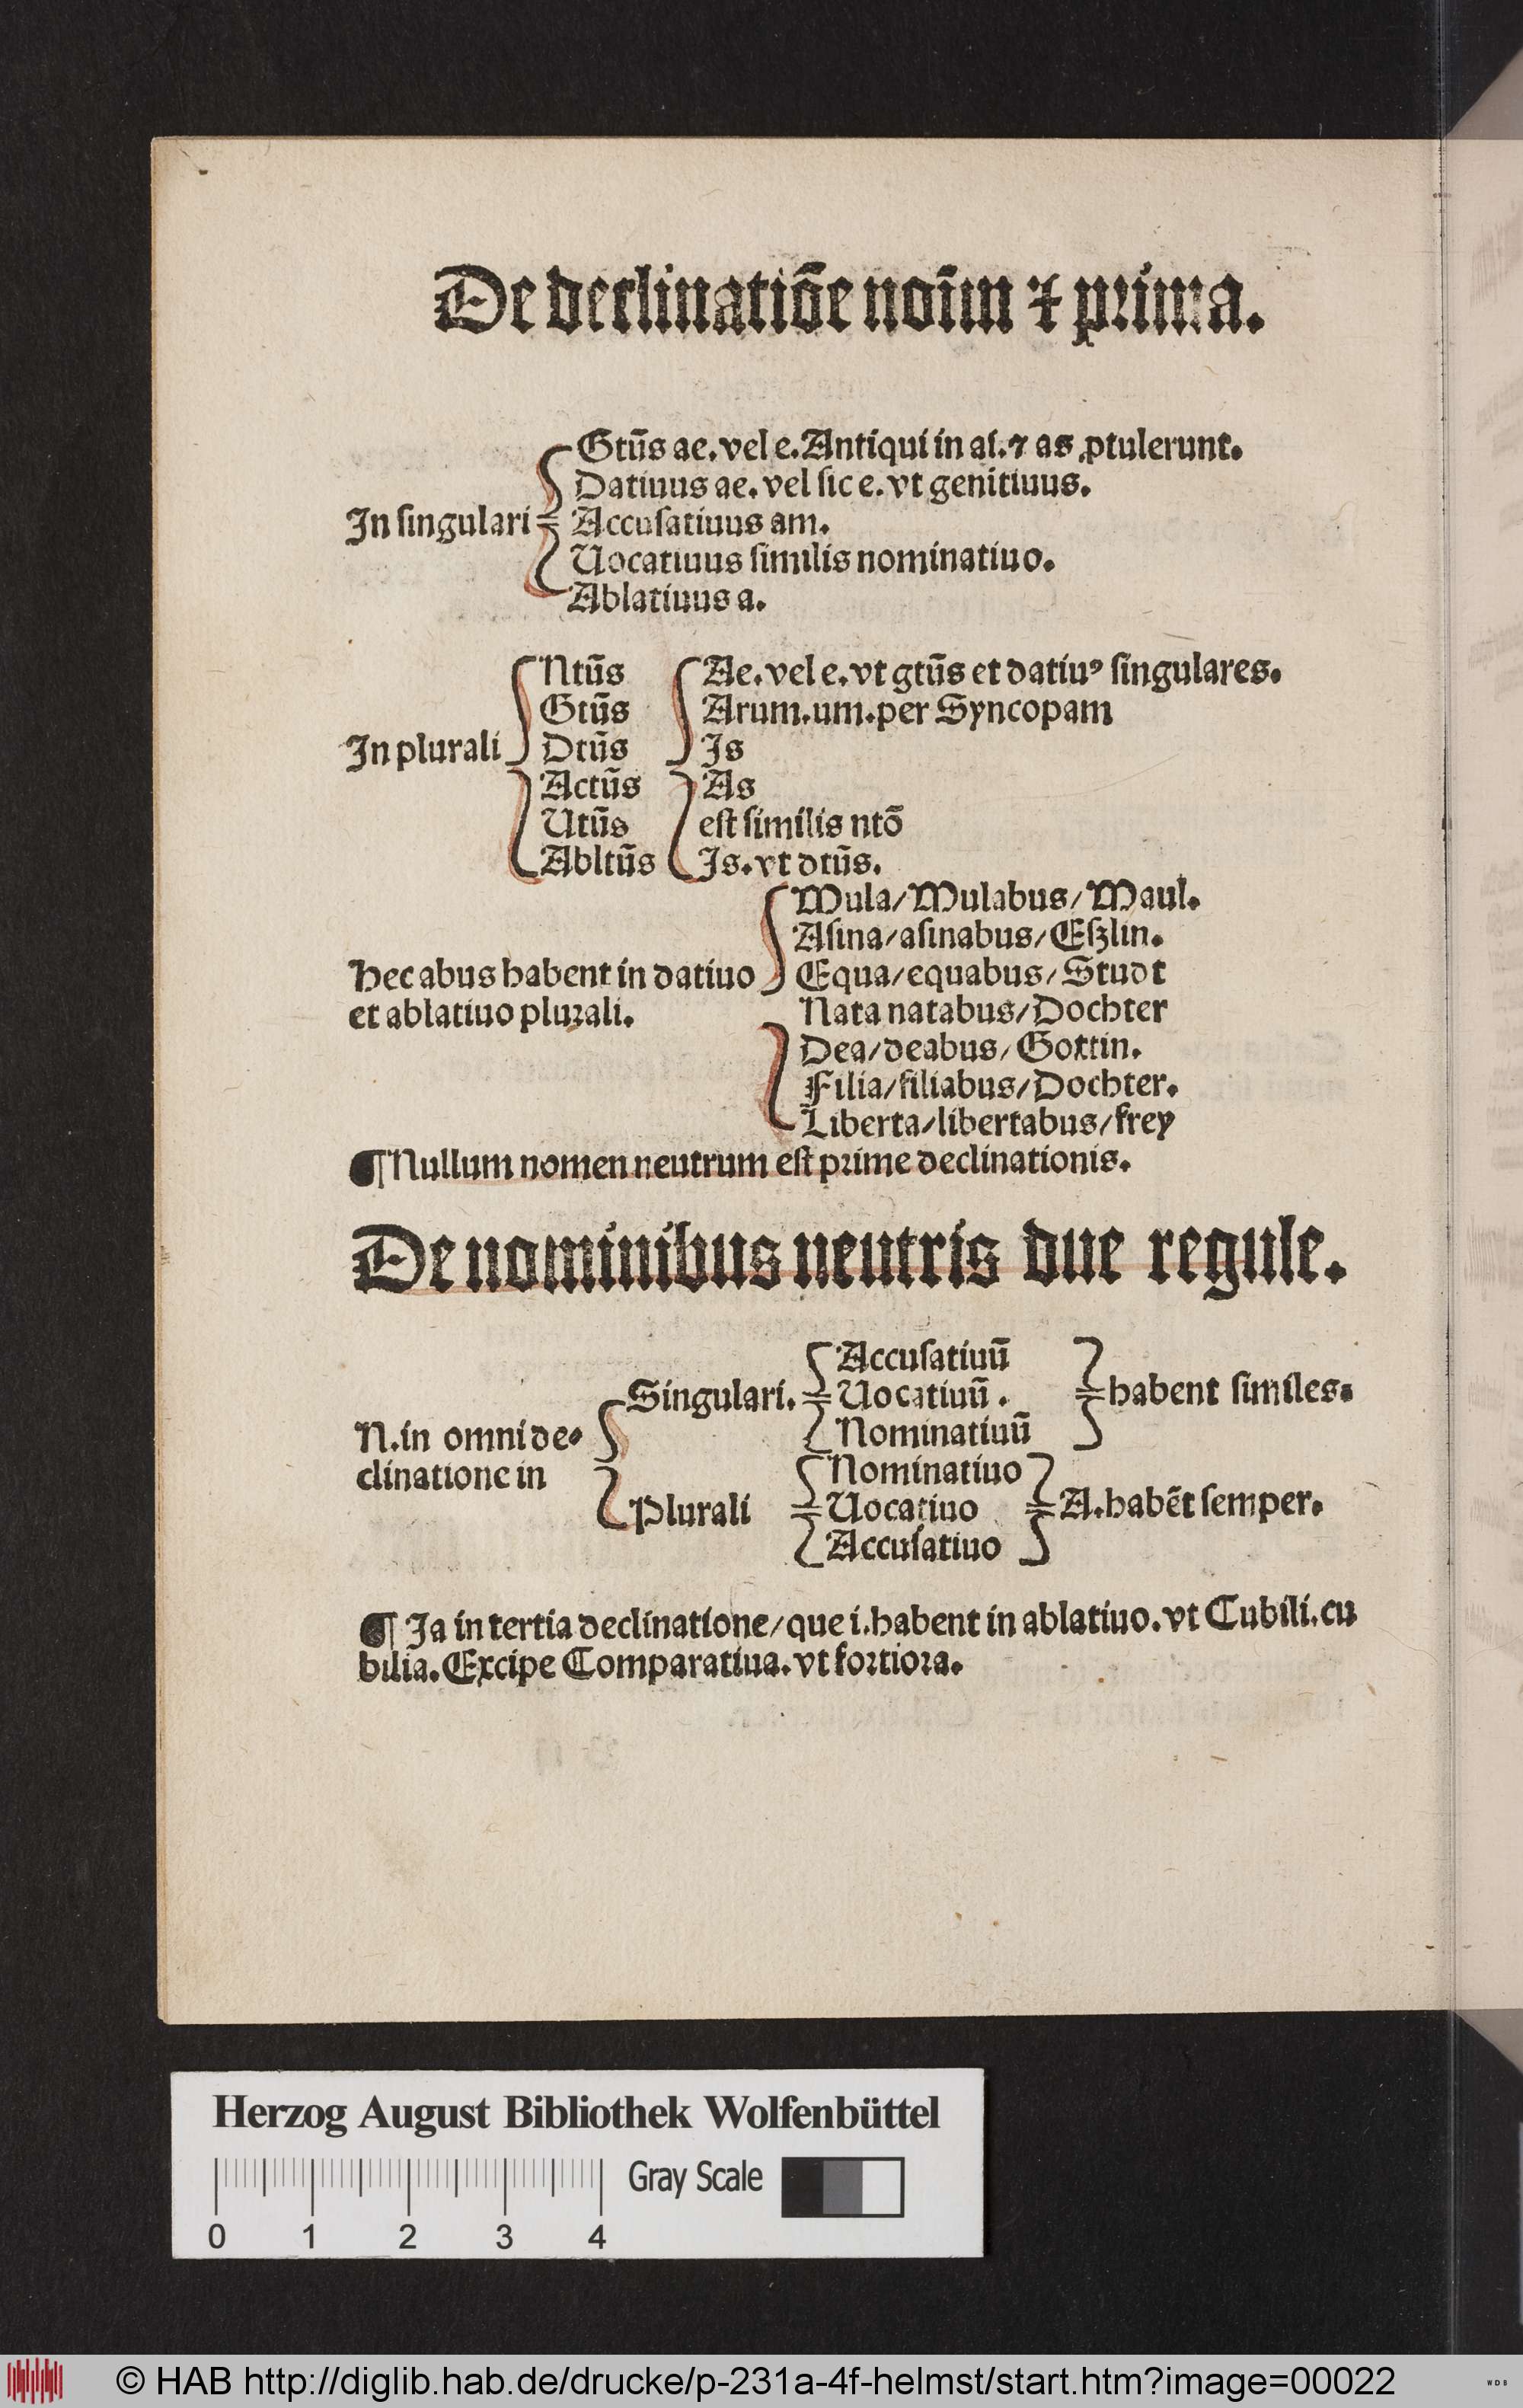 De declinatiōe noīm ⁊ prima.
Gtūs ae. vel e. Antiqui in ai. ⁊ as ꝓtulerunt.
Datiuus ae. vel sic e. vt genitiuus.
In singulari Accusatiuus am.
Uocatiuus similis nominatiuo.
Ablatiuus a.
Ntūs Ae. vel e. vt gtūs et datiuꝰ singulares.
Gtūs Arum. um. per Syncopam
In plurali Dtūs Is
Actūs As
Utūs est similis ntō
Abltūs Is. vt dtūs.
Mula/ Mulabus/ Maul.
Asina/ asinabus/ Eszlin.
Hec abus habent in datiuo Equa/ equabus/ Studt
et ablatiuo plurali. Nata natabus/ Dochter
Dea/ deabus/ Gottin.
Filia/ filiabus/ Dochter.
Liberta/ libertabus/ frey
¶ Nullum nomen neutrum est prime declinationis.
De nominibus neutris due regule.
Accusatiuū
Singulari. Uocatiuū. habent similes.
N. in omni de⸗ Nominatiuū
clinatione in Nominatiuo
Plurali Uocatiuo A. habēt semper.
Accusatiuo
¶ Ia in tertia declinatione/ que i. habent in ablatiuo. vt Cubili. cu
bilia. Excipe Comparatiua. vt fortiora.
Herzog August Bibliothek Wolfenbüttel
Gray Scale
0 1 2 3 4
© HAB http://diglib.hab.de/drucke/p-231a-4f-helmst/start.htm?image=00022
WDB